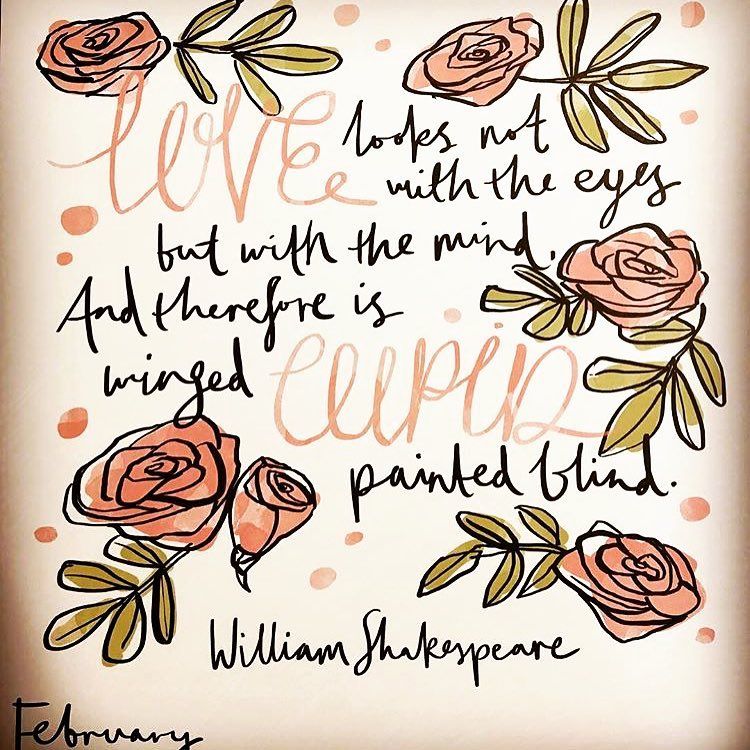 LOVE looks not
with the eyes
but with the mind.
And therefore is
winged CUPID
painted blind.
William Shakespeare
February